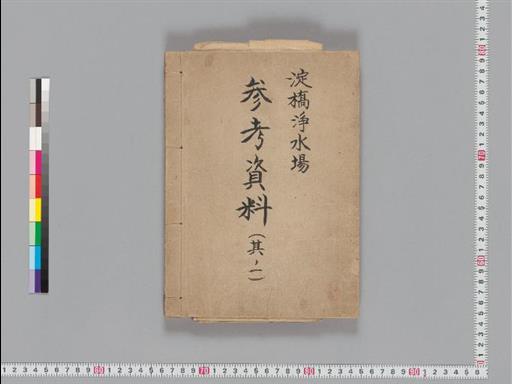 淀橋浄水場
参考資料(其ノ一)